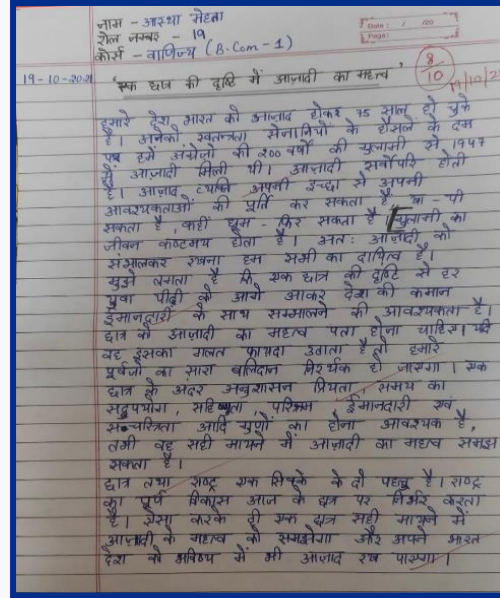 नाम - आस्था मेहता
रोल नम्बर - 19
कोर्स - वाणिज्य (B.Com - 1)
Date: / /20
Page:
8/10
19-10-2021
19/10/2
'एक छात्र की दृष्टि में आज़ादी का महत्व'
हमारे देश भारत को आज़ाद होकर 75 साल हो चुके
हैं। अनेको स्वतन्त्रता सेनानियों के हौसले के दम
पर हमें अंग्रेजों की 200 वर्षों की गुलामी से 1947
में आज़ादी मिली थी। आज़ादी सर्वोपरि होती
है। आज़ाद व्यक्ति अपनी इच्छा से अपनी
आवश्यकताओं की पूर्ति कर सकता है, खा - पी
सकता है, कहीं घूम - फिर सकता है। गुलामी का
जीवन कष्टमय होता है। अतः आज़ादी को
संभालकर रखना हम सभी का दायित्व है।
मुझे लगता है कि एक छात्र की दृष्टि से हर
युवा पीढ़ी को आगे आकर देश की कमान
ईमानदारी के साथ सम्भालने की आवश्यकता है।
छात्र को आज़ादी का महत्व पता होना चाहिए। यदि
वह इसका गलत फायदा उठाता है तो हमारे
पूर्वजों का सारा बलिदान निरर्थक हो जाएगा। एक
छात्र के अंदर अनुशासन प्रियता, समय का
सदुपयोग, सहिष्णुता, परिश्रम ईमानदारी एवं
सच्चरित्रता आदि गुणों का होना आवश्यक है,
तभी वह सही मायने में आज़ादी का महत्व समझ
सकता है।
छात्र तथा राष्ट्र एक सिक्के के दो पहलू है। राष्ट्र
का पूर्ण विकास आज के छात्र पर निर्भर करता
है। ऐसा करके ही एक छात्र सही मायने में
आज़ादी के महत्व को समझेगा और अपने भारत
देश को भविष्य में भी आज़ाद रख पाएगा।